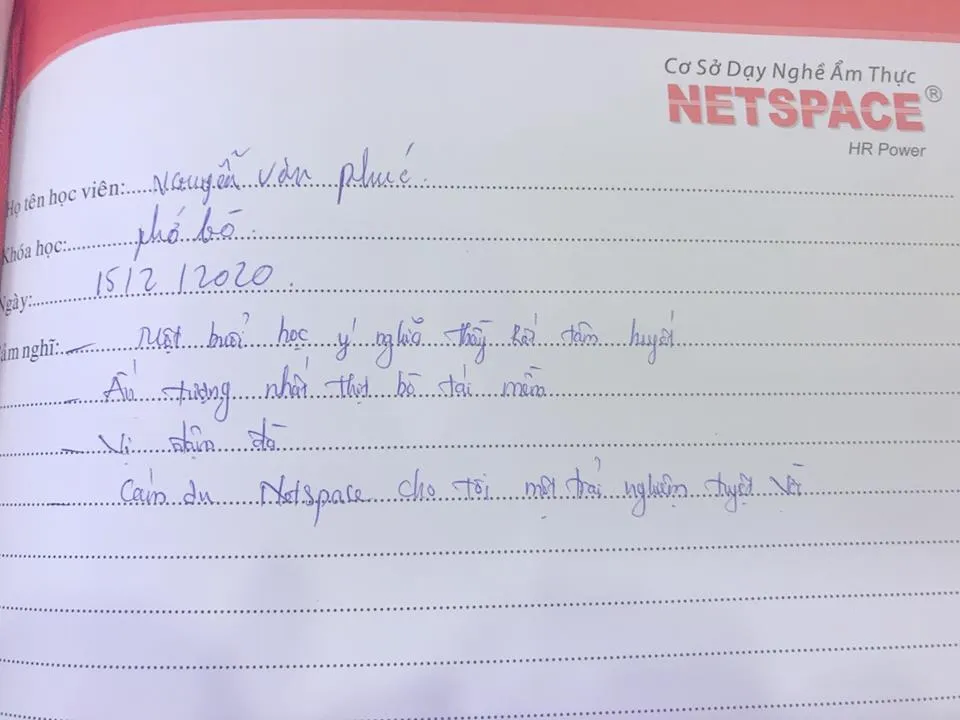 Cơ Sở Dạy Nghề Ẩm Thực
NETSPACE®
HR Power
Họ tên học viên: Nguyễn Văn Phúc.
Khóa học: phở bò.
Ngày: 15/2/2020.
Cảm nghĩ: - Một buổi học ý nghĩa thầy rất tâm huyết
- Ấn tượng nhất thịt bò tái mềm
- Vị đậm đà
- Cám ơn Netspace cho tôi một trải nghiệm tuyệt vời